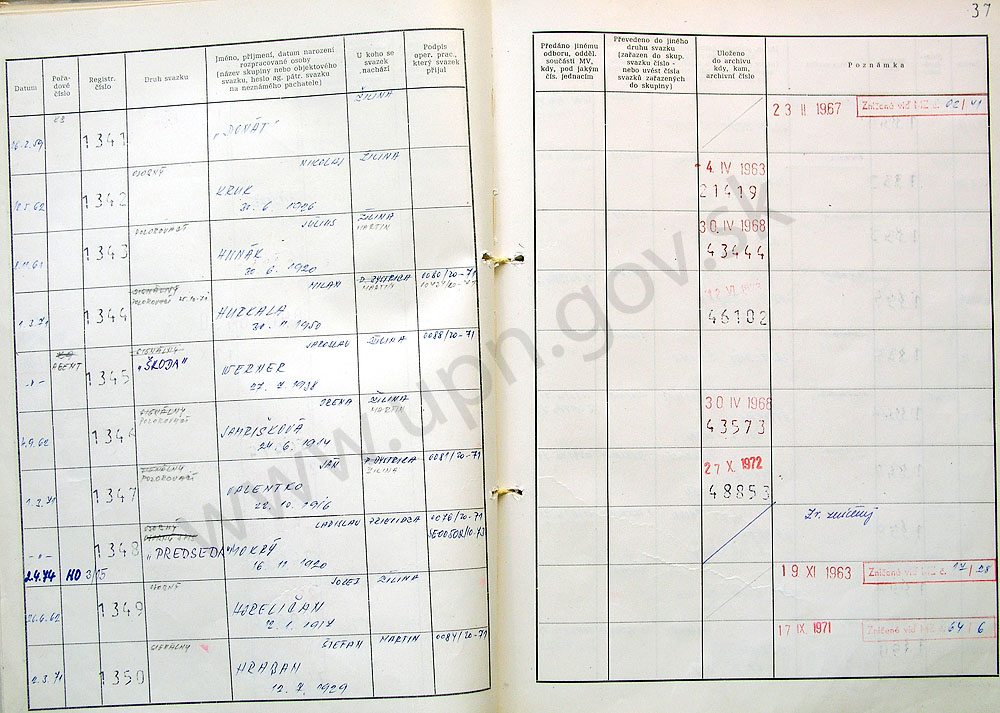 37
Datum
Pořa-
dové
číslo
Registr.
číslo
Druh svazku
Jméno, příjmení, datum narození
rozpracované osoby
(název skupiny nebo objektového
svazku, heslo ag. pátr. svazku
na neznámého pachatele)
U koho se
svazek
nachází
Podpis
oper. prac.,
který svazek
přijal
Předáno jinému
odboru, odděl.
součásti MV,
kdy, pod jakým
čís. jednacím
Převedeno do jiného
druhu svazku
(zařazen do skup.
svazku číslo -
nebo uvést čísla
svazků zařazených
do skupiny)
Uloženo
do archivu
kdy, kam,
archivní číslo
Poznámka
1341
„DONÁT"
ŽILINA
23 II 1967
Zničeno viď MZ č. 02/41
1342
OSOBNÝ
MIKOLAJ
KRUK
30. 6. 1926
ŽILINA
4. IV 1963
21419
1343
JÚLIUS
HUNÁK
30 6. 1920
ŽILINA
MARTIN
30. IV 1968
43444
1. 3. 71
1344
SIGNÁLNY
MILAN
HUZKALA
30. 11. 1950
B. BYSTRICA
MARTIN
0080/20-71
46102
AGENT
1345
SIGNÁLNY
„ŠKODA"
JAROSLAV
WERNER
27. 7. 1938
ŽILINA
0088/20-71
1346
SIGNÁLNY
JAMRIŠKOVÁ
24. 6. 1914
ŽILINA
MARTIN
30 IV 1968
43573
1347
SIGNÁLNY
JÁN
VALENTKO
22. 10. 1916
B. BYSTRICA
ŽILINA
0081/20-71
27 X. 1972
48853
1348
OSOBNÝ
„PREDSEDA"
LADISLAV
MOKRÝ
16. 11 1920
PRIEVIDZA
0076/20-71
2.4.74
HO 3/15
Zv. zničený
1349
OSOBNÝ
JOZEF
2. 1. 1917
ŽILINA
19. XI 1963
Zničeno viď MZ č. 17/28
2. 3. 71
1350
SIGNÁLNY
ŠTEFAN
HRABAN
12. 7. 1929
MARTIN
0084/20-71
17 IX. 1971
Zničeno viď MZ č. 64/6
www.upn.gov.sk